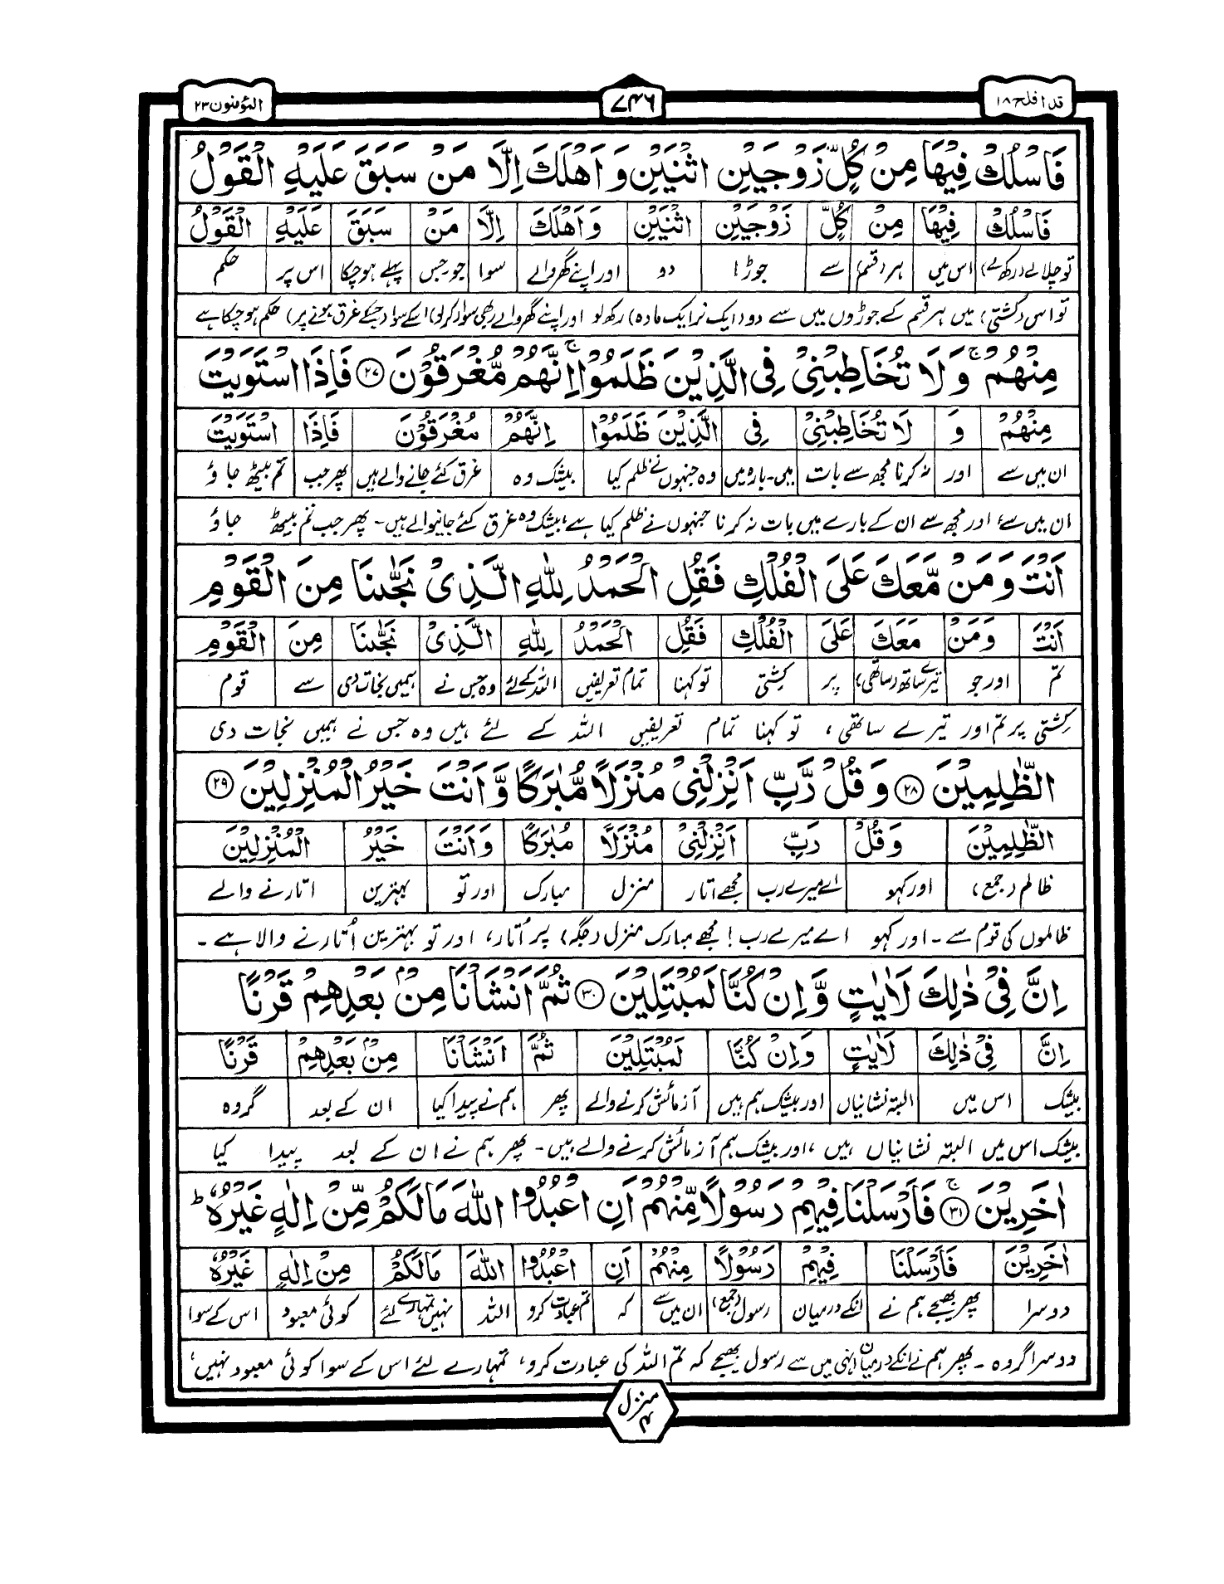 المؤمنون ۲۳
۷۴۶
قد افلح ۱۸
فَاسْلُكْ فِيْهَا مِنْ كُلٍّ زَوْجَيْنِ اثْنَيْنِ وَاَهْلَكَ اِلَّا مَنْ سَبَقَ عَلَيْهِ الْقَوْلُ
فَاسْلُكْ فِيْهَا مِنْ كُلٍّ زَوْجَيْنِ اثْنَيْنِ وَاَهْلَكَ اِلَّا مَنْ سَبَقَ عَلَيْهِ الْقَوْلُ
تو چلالے (رکھ لے) اس میں ہر (قسم) سے جوڑا دو اور اپنے گھر والے سوا جو۔جس پہلے ہوچکا اس پر حکم
تو اس (کشتی) میں ہر قسم کے جوڑوں میں سے دو (ایک نر ایک مادہ) رکھ لو اور اپنے گھر والے (بھی سوار کرلو) اسکے سوا جسکے غرق ہونے پر) حکم ہو چکا ہے
مِنْهُمْ ۚ وَلَا تُخَاطِبْنِيْ فِي الَّذِيْنَ ظَلَمُوْا ۚ اِنَّهُمْ مُّغْرَقُوْنَ ﴿۲۷﴾ فَاِذَا اسْتَوَيْتَ
مِنْهُمْ وَ لَا تُخَاطِبْنِيْ فِي الَّذِيْنَ ظَلَمُوْا اِنَّهُمْ مُغْرَقُوْنَ فَاِذَا اسْتَوَيْتَ
ان میں سے اور نہ کرنا مجھ سے بات میں۔بارہ میں وہ جنہوں نے ظلم کیا بیشک وہ غرق کئے جانے والے ہیں پھر جب تم بیٹھ جاؤ
ان میں سے، اور مجھ سے ان کے بارے میں بات نہ کرنا جنہوں نے ظلم کیا ہے، بیشک وہ غرق کئے جانیوالے ہیں۔ پھر جب تم بیٹھ جاؤ
اَنْتَ وَمَنْ مَّعَكَ عَلَى الْفُلْكِ فَقُلِ الْحَمْدُ لِلّٰهِ الَّذِيْ نَجّٰىنَا مِنَ الْقَوْمِ
اَنْتَ وَمَنْ مَعَكَ عَلَى الْفُلْكِ فَقُلِ الْحَمْدُ لِلّٰهِ الَّذِيْ نَجّٰىنَا مِنَ الْقَوْمِ
تم اور جو تیرے ساتھ (ساتھی) پر کشتی تو کہنا تمام تعریفیں اللہ کے لئے وہ جس نے ہمیں نجات دی سے قوم
کشتی پر تم اور تیرے ساتھی، تو کہنا تمام تعریفیں اللہ کے لئے ہیں وہ جس نے ہمیں نجات دی
الظّٰلِمِيْنَ ﴿۲۸﴾ وَقُلْ رَّبِّ اَنْزِلْنِيْ مُنْزَلًا مُّبٰرَكًا وَّاَنْتَ خَيْرُ الْمُنْزِلِيْنَ ﴿۲۹﴾
الظّٰلِمِيْنَ وَقُلْ رَبِّ اَنْزِلْنِيْ مُنْزَلًا مُبٰرَكًا وَاَنْتَ خَيْرُ الْمُنْزِلِيْنَ
ظالم (جمع) اور کہو اے میرے رب مجھے اتار منزل مبارک اور تو بہترین اتارنے والے
ظالموں کی قوم سے۔ اور کہو اے میرے رب! مجھے مبارک منزل (جگہ) پر اُتار، اور تو بہترین اُتارنے والا ہے۔
اِنَّ فِيْ ذٰلِكَ لَاٰيٰتٍ وَّاِنْ كُنَّا لَمُبْتَلِيْنَ ﴿۳۰﴾ ثُمَّ اَنْشَاْنَا مِنْ بَعْدِهِمْ قَرْنًا
اِنَّ فِيْ ذٰلِكَ لَاٰيٰتٍ وَاِنْ كُنَّا لَمُبْتَلِيْنَ ثُمَّ اَنْشَاْنَا مِنْ بَعْدِهِمْ قَرْنًا
بیشک اس میں البتہ نشانیاں اور بیشک ہم ہیں آزمائش کرنے والے پھر ہم نے پیدا کیا ان کے بعد گروہ
بیشک اس میں البتہ نشانیاں ہیں، اور بیشک ہم آزمائش کرنے والے ہیں۔ پھر ہم نے ان کے بعد پیدا کیا
اٰخَرِيْنَ ﴿۳۱﴾ۚ فَاَرْسَلْنَا فِيْهِمْ رَسُوْلًا مِّنْهُمْ اَنِ اعْبُدُوا اللّٰهَ مَا لَكُمْ مِّنْ اِلٰهٍ غَيْرُهٗ ؕ
اٰخَرِيْنَ فَاَرْسَلْنَا فِيْهِمْ رَسُوْلًا مِنْهُمْ اَنِ اعْبُدُوا اللّٰهَ مَا لَكُمْ مِنْ اِلٰهٍ غَيْرُهٗ
دوسرا پھر بھیجے ہم نے انکے درمیان رسول (جمع) ان میں سے کہ تم عبادت کرو اللہ نہیں تمہارے لئے کوئی معبود اس کے سوا
دوسرا گروہ۔ پھر ہم نے انکے درمیان انہی میں سے رسول بھیجے کہ تم اللہ کی عبادت کرو، تمہارے لئے اس کے سوا کوئی معبود نہیں،
منزل ۴